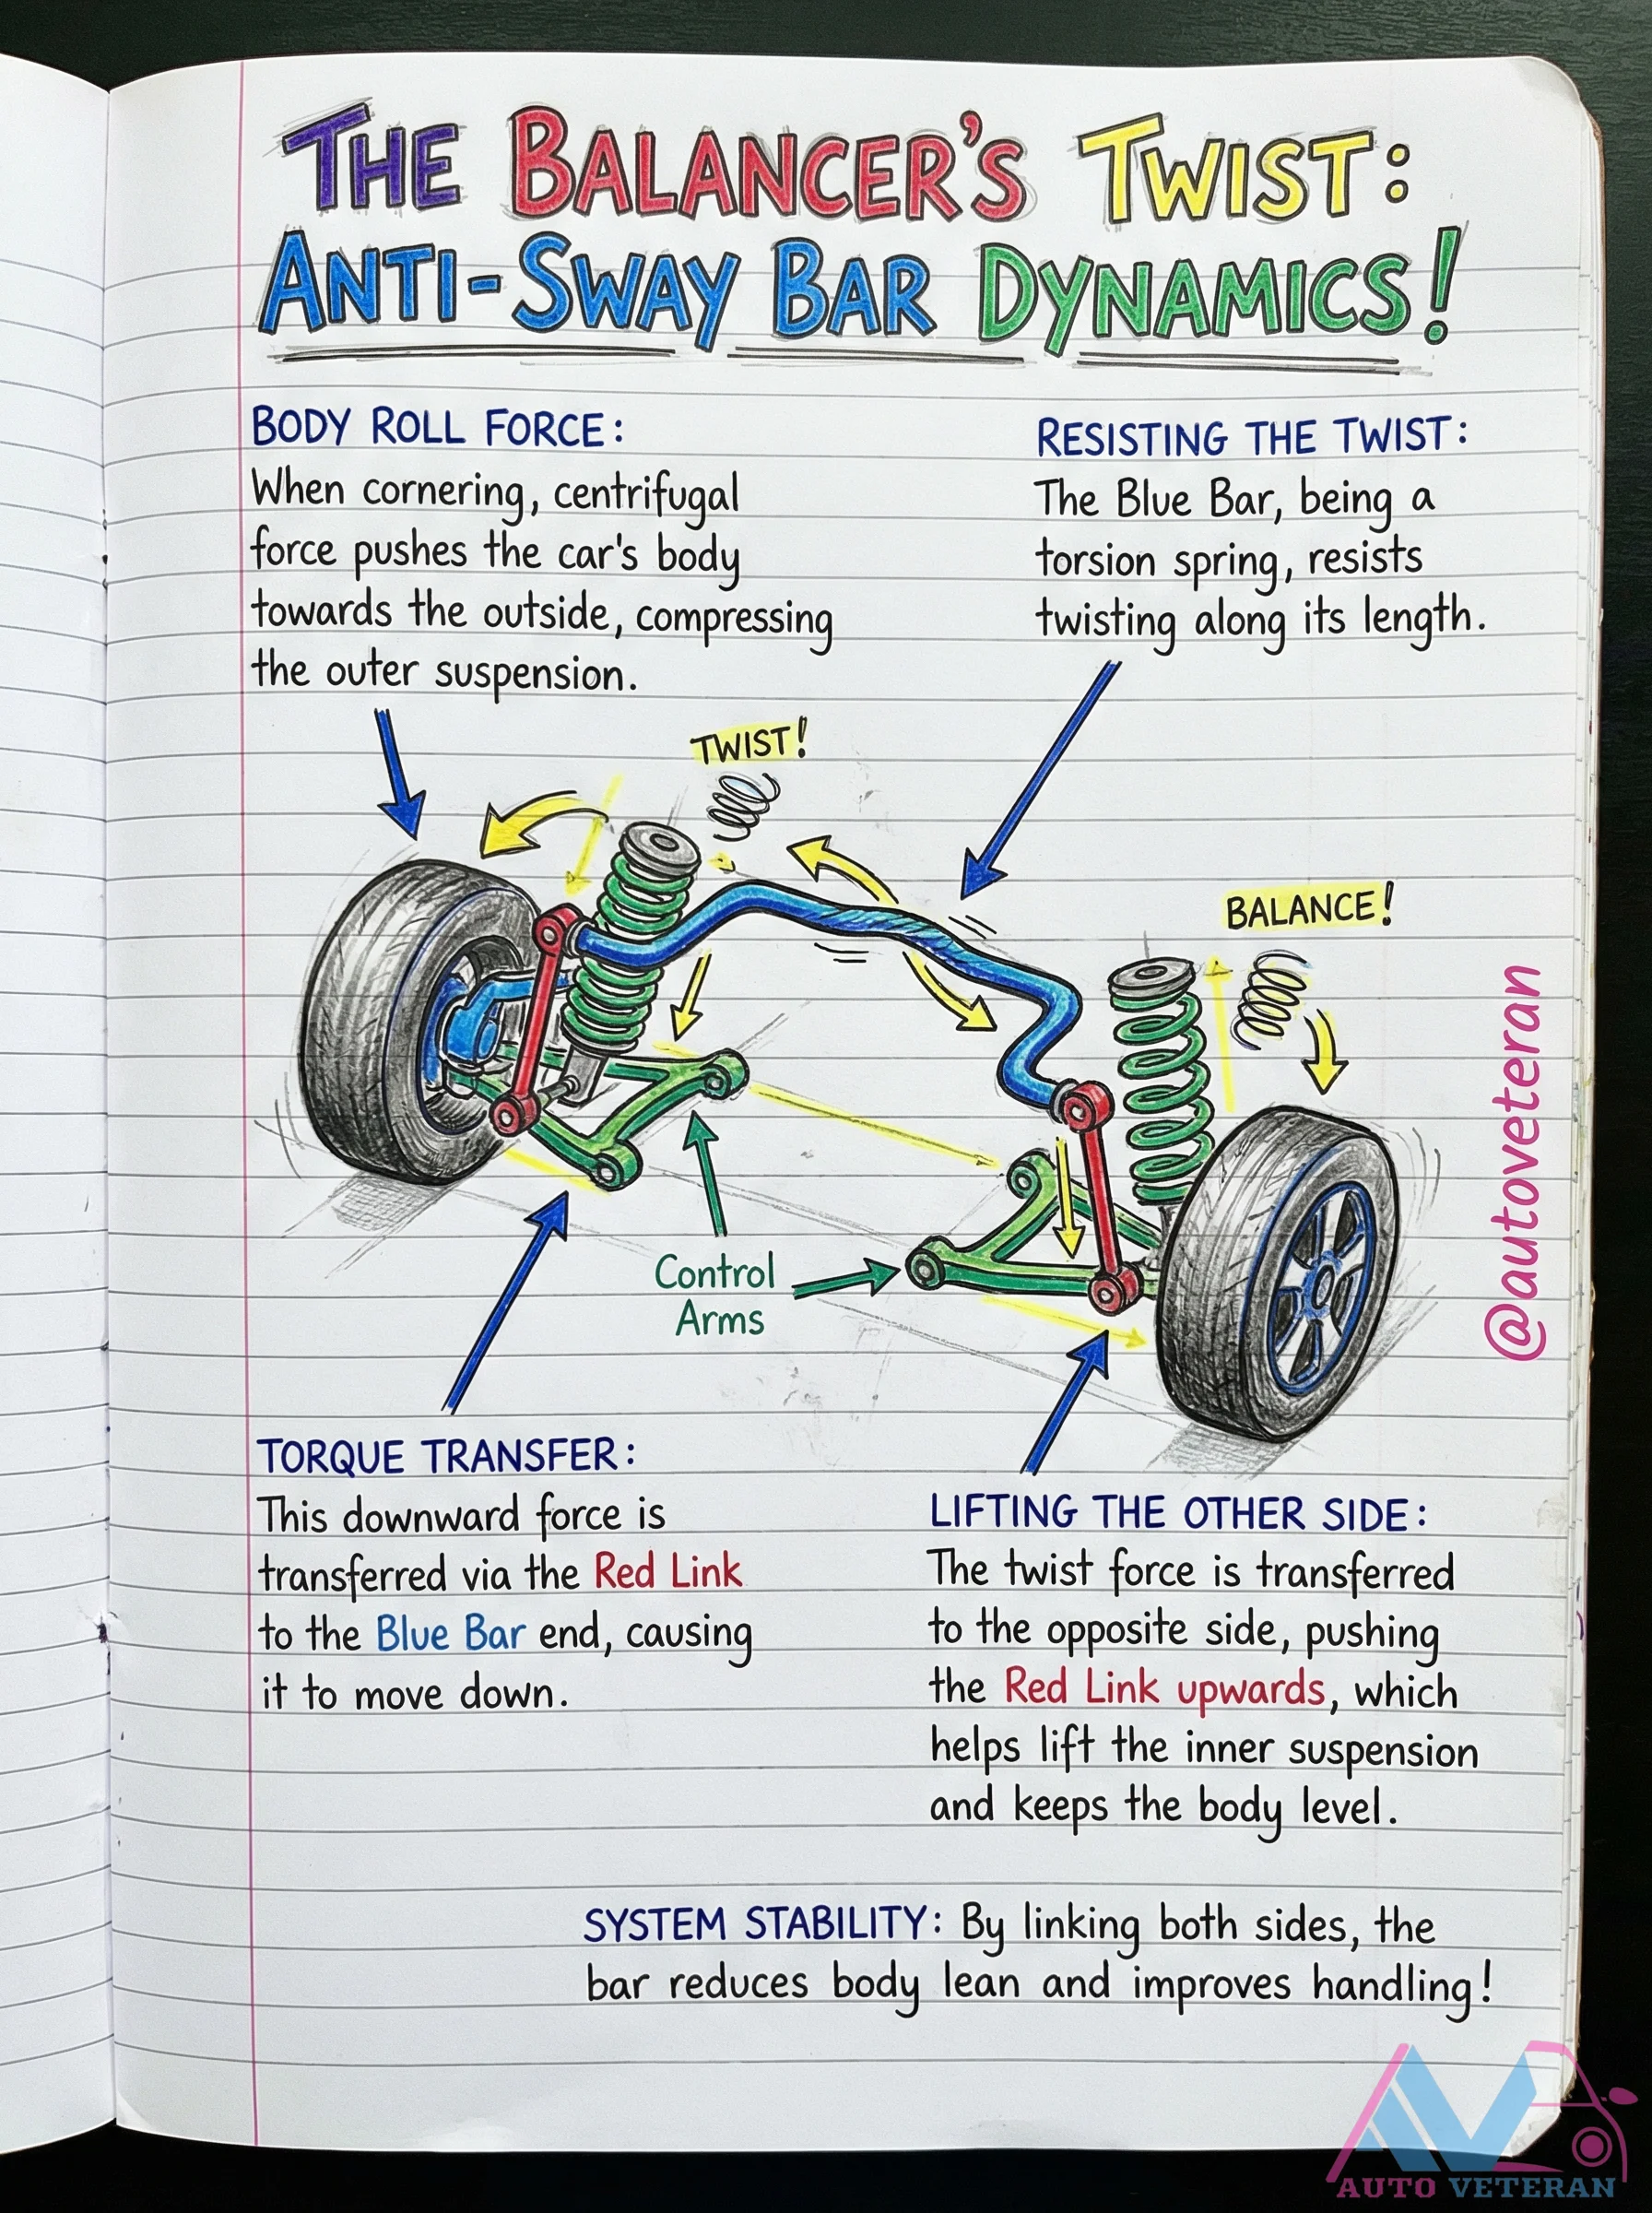 THE BALANCER'S TWIST:
ANTI-SWAY BAR DYNAMICS!
BODY ROLL FORCE:
When cornering, centrifugal
force pushes the car's body
towards the outside, compressing
the outer suspension.
RESISTING THE TWIST:
The Blue Bar, being a
torsion spring, resists
twisting along its length.
TWIST!
BALANCE!
@autoveteran
Control
Arms
TORQUE TRANSFER:
This downward force is
transferred via the Red Link
to the Blue Bar end, causing
it to move down.
LIFTING THE OTHER SIDE:
The twist force is transferred
to the opposite side, pushing
the Red Link upwards, which
helps lift the inner suspension
and keeps the body level.
SYSTEM STABILITY: By linking both sides, the
bar reduces body lean and improves handling!
AV
AUTO VETERAN